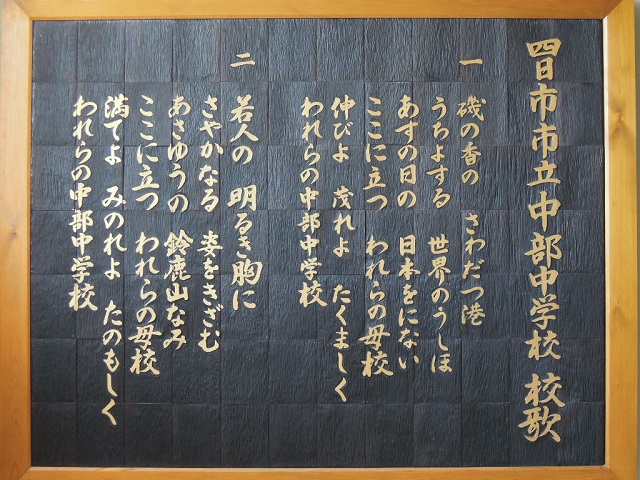 四日市市立中部中学校 校歌
一
磯の香の さわだつ港
うちよする 世界のうしほ
あすの日の 日本をにない
ここに立つ われらの母校
伸びよ 茂れよ たくましく
われらの中部中学校
二
若人の 明るき胸に
さやかなる 姿をきざむ
あさゆうの 鈴鹿山なみ
ここに立つ われらの母校
満てよ みのれよ たのもしく
われらの中部中学校